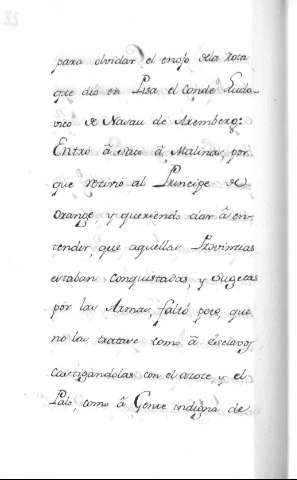 para olvidar el enojo de la Rota
que dio en Pisa el Conde Ludo-
vico de Nasau de Aremberg:
Entrò â saco â Malinas, por
que retirò al Principe de
Orange, y queriendo dar â en-
tender, que aquellas Provincias
estaban conquistadas, y sugetas
por las Armas, faltò poco, que
no las tratase como â Esclavos
castigandolas con el azote, y el
Palo, como â Gente indigna de